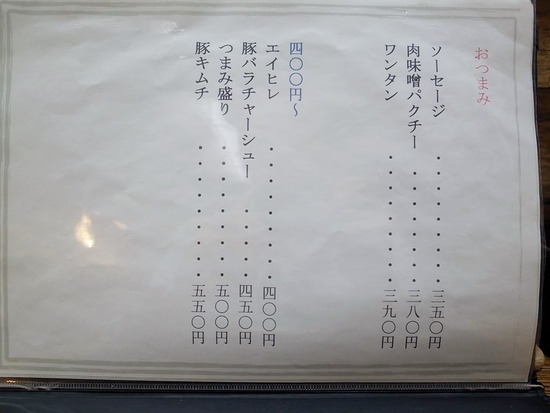 おつまみ
ソーセージ・・・・・・・・・三五〇円
肉味噌パクチー・・・・・・・三八〇円
ワンタン・・・・・・・・・・三九〇円
四〇〇円～
エイヒレ・・・・・・・・・・四〇〇円
豚バラチャーシュー・・・・・四五〇円
つまみ盛り・・・・・・・・・五〇〇円
豚キムチ・・・・・・・・・・五五〇円